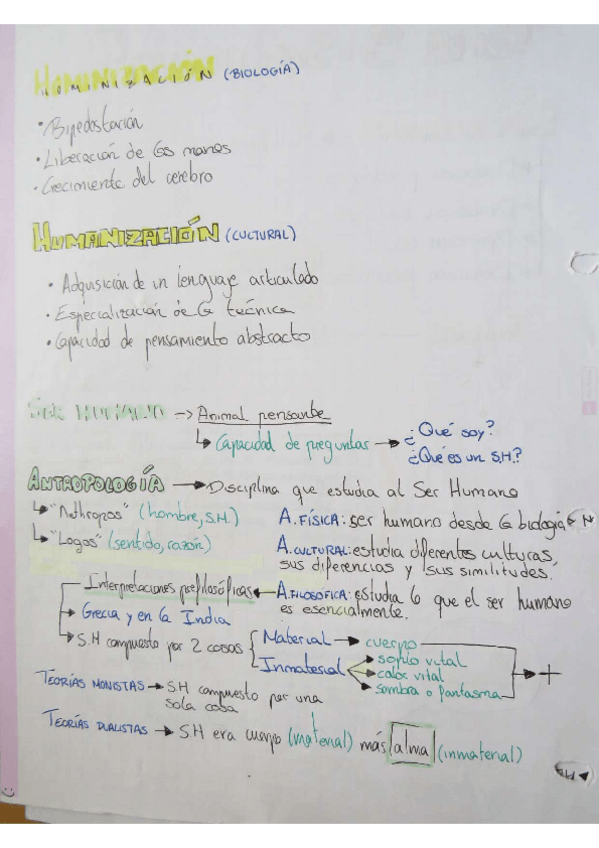 HOMINIZACIÓN (BIOLOGÍA)
• Bipedestación
• Liberación de las manos
• Crecimiento del cerebro
HUMANIZACIÓN (CULTURAL)
• Adquisición de un lenguaje articulado
• Especialización de la técnica
• Capacidad de pensamiento abstracto
SER HUMANO → Animal pensante
↳ Capacidad de preguntar → ¿Qué soy?
¿Qué es un S.H.?
ANTROPOLOGÍA → Disciplina que estudia al Ser Humano
↳ "Anthropos" (hombre, S.H.)
↳ "Logos" (sentido, razón)
A. FÍSICA: ser humano desde la biología
A. CULTURAL: estudia diferentes culturas,
sus diferencias y sus similitudes.
A. FILOSÓFICA: estudia lo que el ser humano
es esencialmente.
Interpretaciones prefilosóficas
→ Grecia y en la India
→ S.H compuesto por 2 cosas
Material → cuerpo
Inmaterial → soplo vital
→ calor vital
→ sombra o fantasma
→ +
TEORÍAS MONISTAS → S.H compuesto por una
sola cosa
TEORÍAS DUALISTAS → S.H era cuerpo (material) más alma (inmaterial)